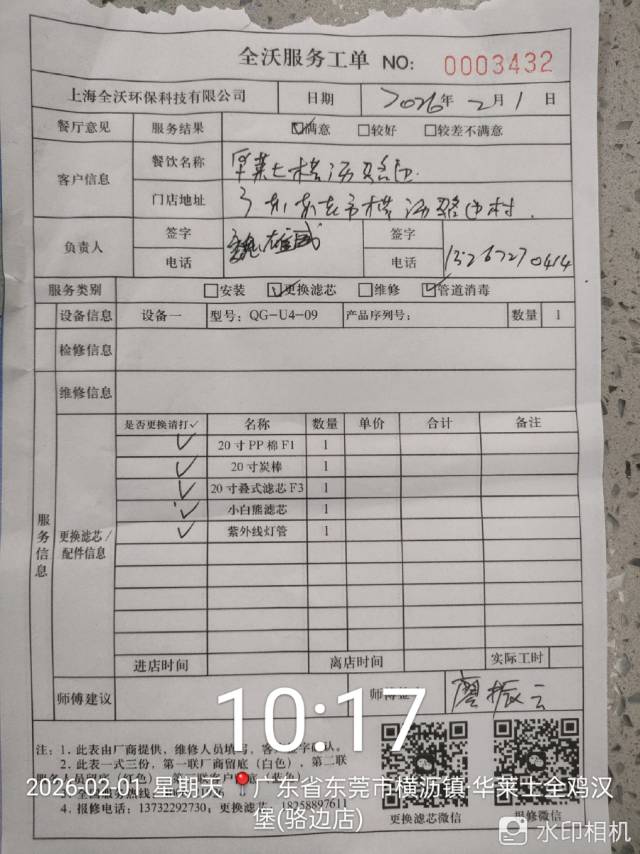 全沃服务工单 NO: 0003432
上海全沃环保科技有限公司 日期 2026年 2月1日
餐厅意见 服务结果 ☑满意 □较好 □较差不满意
客户信息 餐饮名称 华莱士横沥骆边
门店地址 广东东莞市横沥骆边村.
负责人 签字 魏雄威 签字
电话 电话 13267270414
服务类别 □安装 ☑更换滤芯 □维修 ☑管道消毒
设备信息 设备一 型号: QG-U4-09 产品序列号: 数量 1
检修信息
维修信息
服务信息
更换滤芯/配件信息
是否更换请打✓ 名称 数量 单价 合计 备注
✓ 20寸PP棉F1 1
✓ 20寸炭棒 1
✓ 20寸叠式滤芯F3 1
✓ 小白熊滤芯 1
✓ 紫外线灯管 1
进店时间 离店时间 实际工时
师傅建议 师傅 廖振云
10:17
注: 1.此表由厂商提供, 维修人员填写, 客 签字确认。
2.此表一式三份, 第一联厂商留底(白色), 第二联
服务人员留底(红色)
2026-02-01 星期天 广东省东莞市横沥镇·华莱士全鸡汉堡(骆边店)
4.报修电话: 13732292730; 更换滤芯: 18258897611
更换滤芯微信 报修微信
水印相机